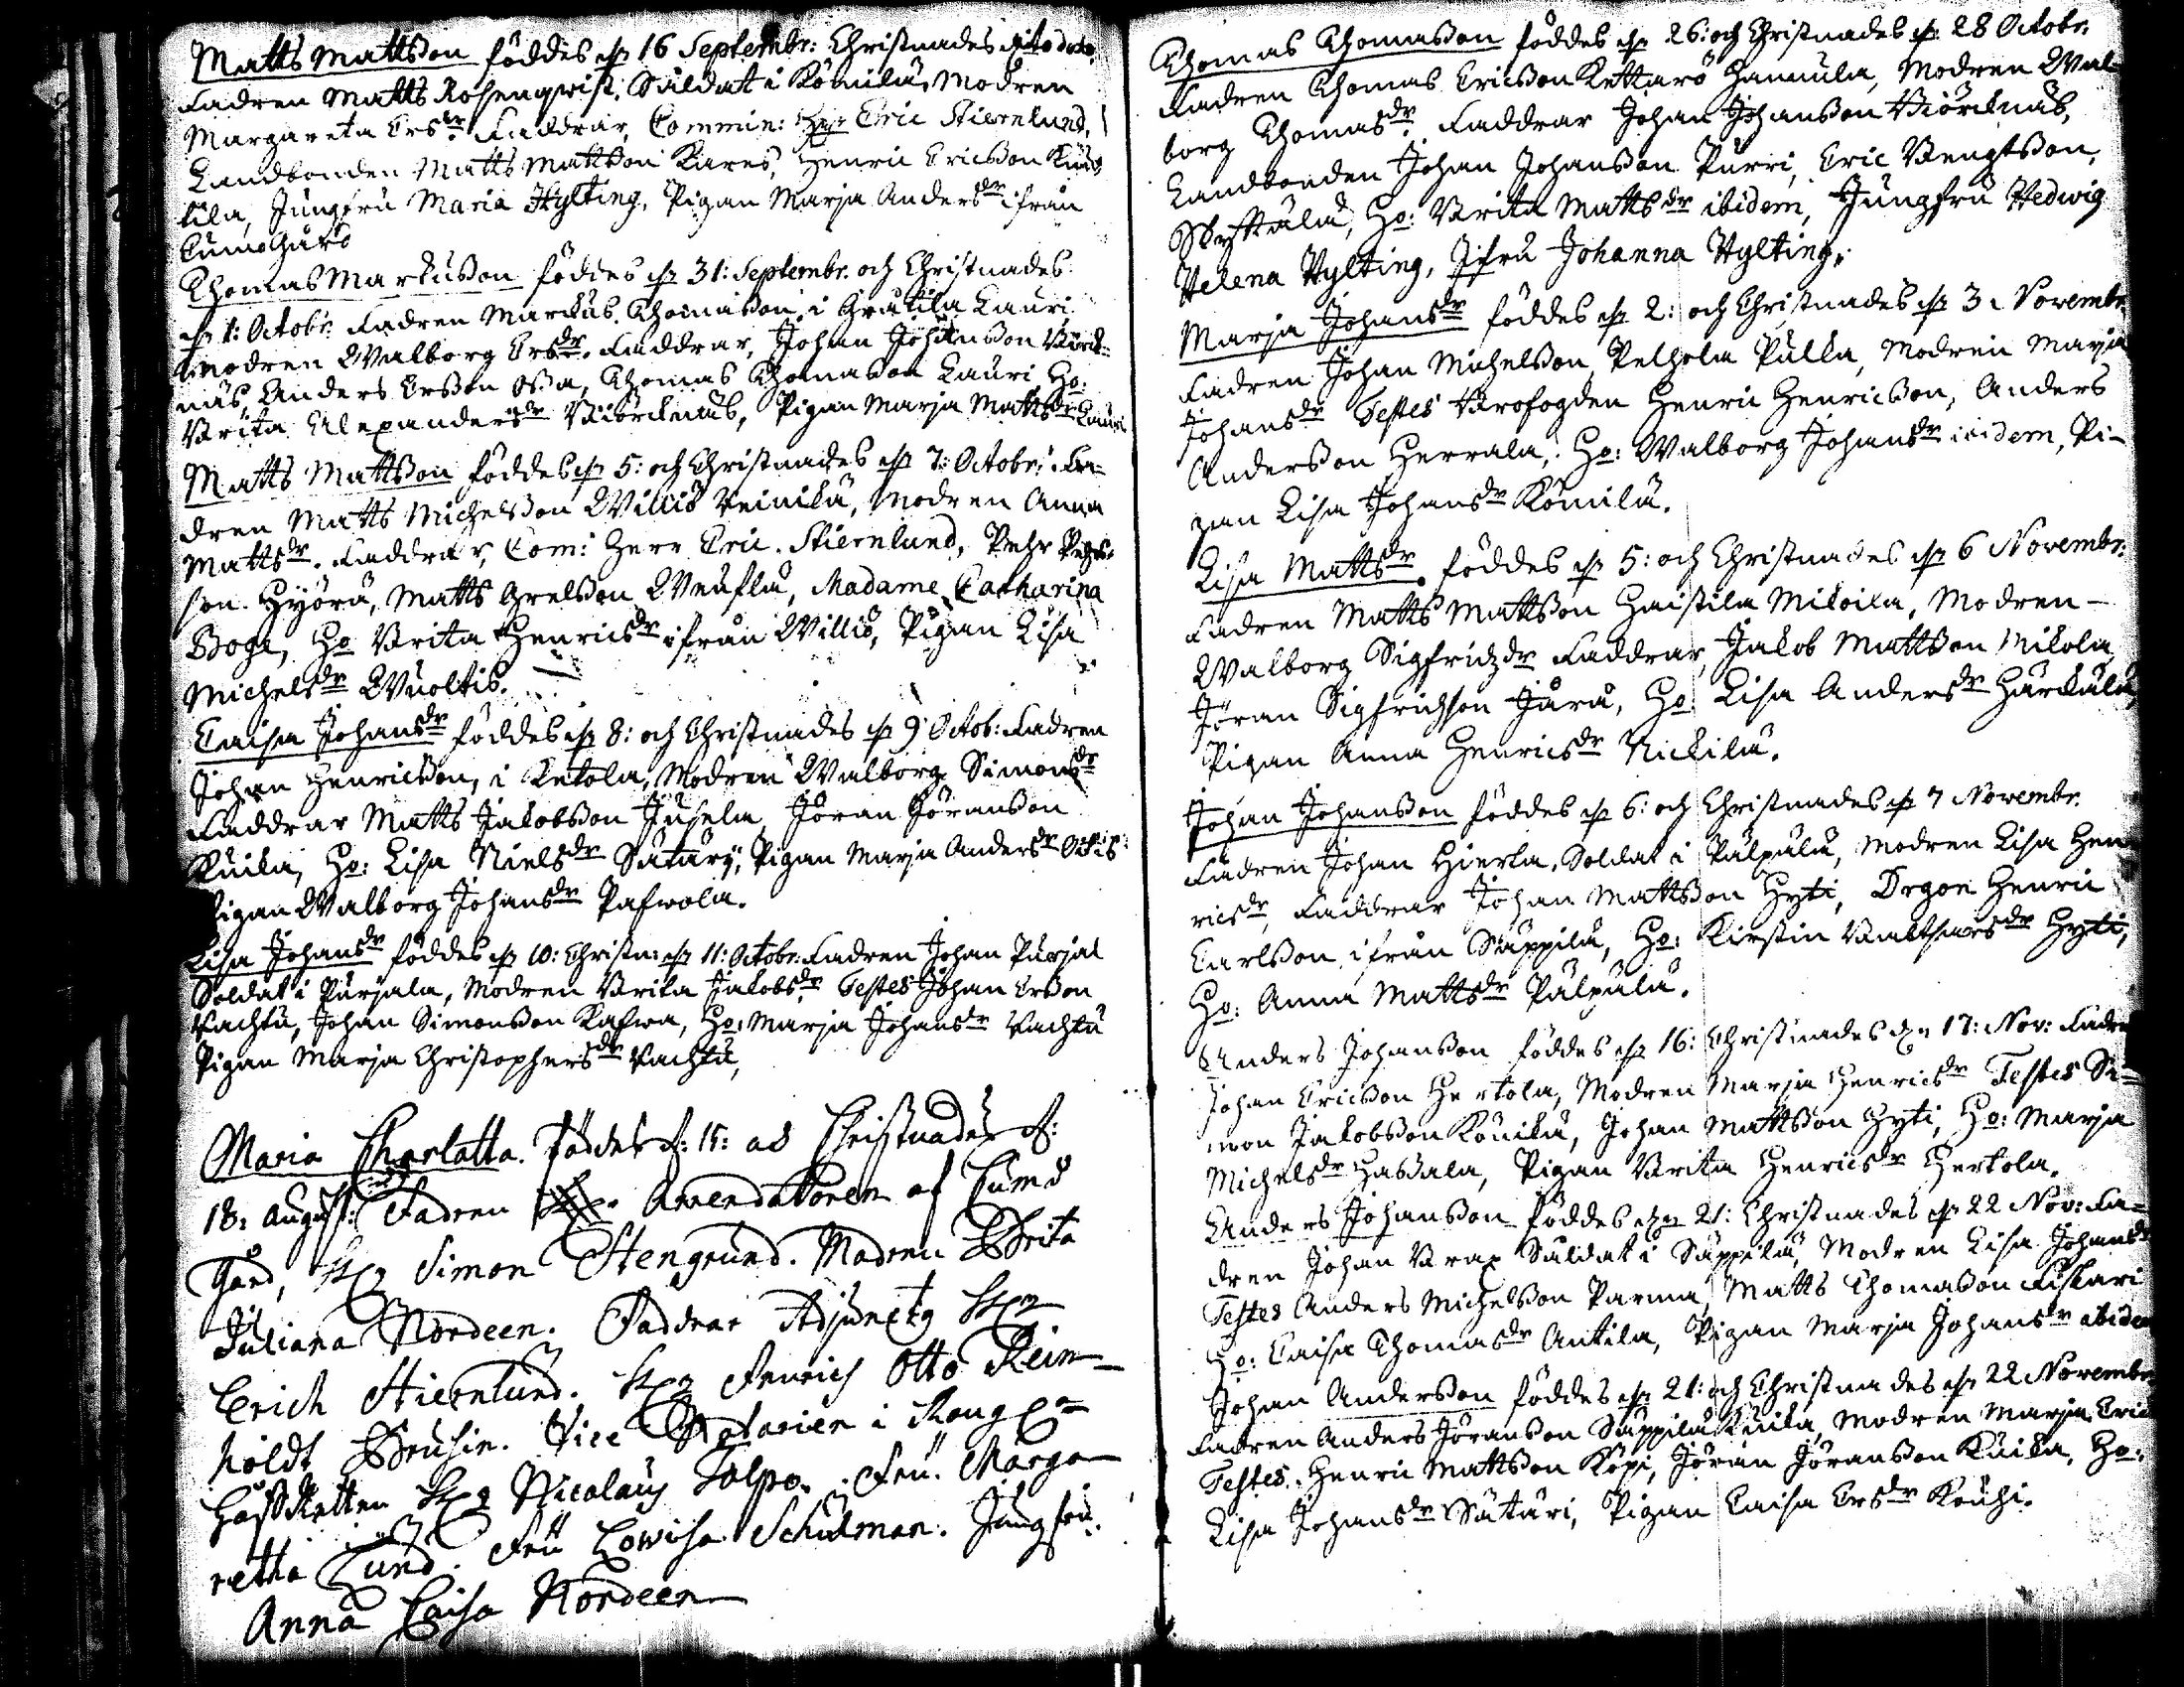 Matts Mattsson föddes d. 16 Septembr: Christnades dito dato.
Fadren Matts Rosenqwist, Saldat i Kömilä, Modren
Margareta Ersdr. Faddrar, Commin: Herr Eric Stiernlund,
Landbonden Matts Mattsson Kares, Henric Ericsson
tila, Jungfru Maria Hylting, Pigan Marja Andersdr ifrån
Cumogård
Thomas Markusson föddes d. 31: Septembr. och Christnades
d. 1: Octobr. Fadren Markus Thomasson i Gratila Lauri
Modren Walborg Ersdr. Faddrar, Johan Johansson Biörck-
näs, Anders Ersson Ossa, Thomas Thomasson Lauri, Ho:
Brita Alexandersdr Biörcknäs, Pigan Marja Mattsdr Lauri
Matts Mattsson föddes d. 5: och Christnades d. 7: Octobr: Fa-
dren Matts Michelsson Williö Reinikä, Modren Anna
Mattsdr. Faddrar, Com: Herr Eric Stiernlund, Pehr Pehr-
son Hyörä, Matts Grelsson Weuflä, Madame Catharina
Boge, Ho Brita Henricsdr ifrån Williö, Pigan Lisa
Michelsdr Wuoltis.
Caisa Johansdr föddes d. 8: och Christnades d. 9 Octob: Fadren
Johan Henricsson, i Ketola, Modren Walborg Simonsdr
Faddrar Matts Jakobsson Jusela Jöran Jöransson
Kuika, Ho: Lisa Nielsdr Sätäry, Pigan Marja Andersdr
Pigan Walborg Johansdr Pafwola.
Lisa Johansdr föddes d. 10: Christn: d. 11: Octobr: Fadren Johan Purjal
Soldat i Purjala, Modren Brita Jakobsdr. Testes Johan Ersson
Vachtu, Johan Simonsson Kafwa, Ho: Marja Johansdr Vachtu
Pigan Marja Christophersdr Vachtu,
Maria Charlatta. föddes d: 15: ad Christnades d:
18: August: Fadren Arrendatoren af Cumo
Gård, Simon Stengrund. Modren Brita
Juliana Nordeen. Faddrar Adjunctg
Erich Stiernlund. Fenrich Otto Rein-
holdt Brusin. Vice Notarien i Kongl
HofRetten Nicolaus Tolpo. Fru. Marga
retha Lund. Fru Lowisa Schulman. Jungfru.
Anna Caisa Nordeen
Thomas Thomasson föddes d. 26: och Christnades d. 28 Octobr.
Fadren Thomas Ericsson Kettarö Hannula, Modren Wal-
borg Thomasdr. Faddrar Johan Johansson Biörcknäs,
Landbonden Johan Johansson Purri, Eric Bengtsson,
Ho: Brita Mattsdr ibidem, Jungfru Hedwig
Helena Hylting, Jfru Johanna Hylting,
Marja Johansdr föddes d. 2: och Christnades d. 3: Novembr
Fadren Johan Michelsson Pelhola Pulla, Modren Marja
Johansdr Testes Brofogden Henric Henricsson, Anders
Andersson Herrala, Ho: Walborg Johansdr ibidem, Pi-
gan Lisa Johansdr Kömilä.
Lisa Mattsdr. föddes d. 5: och Christnades d. 6 Novembr:
Fadren Matts Mattsson Haistila Mikoila, Modren -
Walborg Sigfridzdr Faddrar, Jakob Mattsson Mikola
Jöran Sigfridsson Jära, Ho: Lisa Andersdr Härckälä,
Pigan Anna Henricsdr Nickilä.
Johan Johansson föddes d. 6: och Christnades d. 7 Novembr.
Fadren Johan Hierta, Soldat i Pälpälä, Modren Lisa Hen
ricsdr, Faddrar Johan Mattsson Hyti, Drgon Henric
Carlsson, ifrån Säppilä, Ho: Kirstin Balthzarsdr Hyti,
Ho: Anna Mattsdr Pälpälä.
Anders Johansson föddes d. 16: Christnades den 17: Nov: Fadre
Johan Ericsson Hertola, Modren Marja Henricsdr Testes Si-
mon Jakobsson Kouiku, Johan Mattsson Hyti, Ho: Marja
Michelsdr Hassala, Pigan Brita Henricsdr Hertola.
Anders Johansson föddes den 21: Christnades d. 22 Nov: Fa-
dren Johan Brax Saldat i Säppilä, Modren Lisa Johansd
Testes Anders Michelsson Parma, Matts Thomasson Fiskari
Ho: Caisa Thomasdr Antila, Pigan Marja Johansdr ibidem
Johan Andersson föddes d. 21: och Christnades d. 22 Novembr
Fadren Anders Jöransson Säppilä Kuika, Modren Marja Eric
Testes. Henric Mattsson Köpi, Jöran Jöransson Kuika, Ho:
Lisa Johansdr Sätäri, Pigan Caisa Ersdr Kouhi.